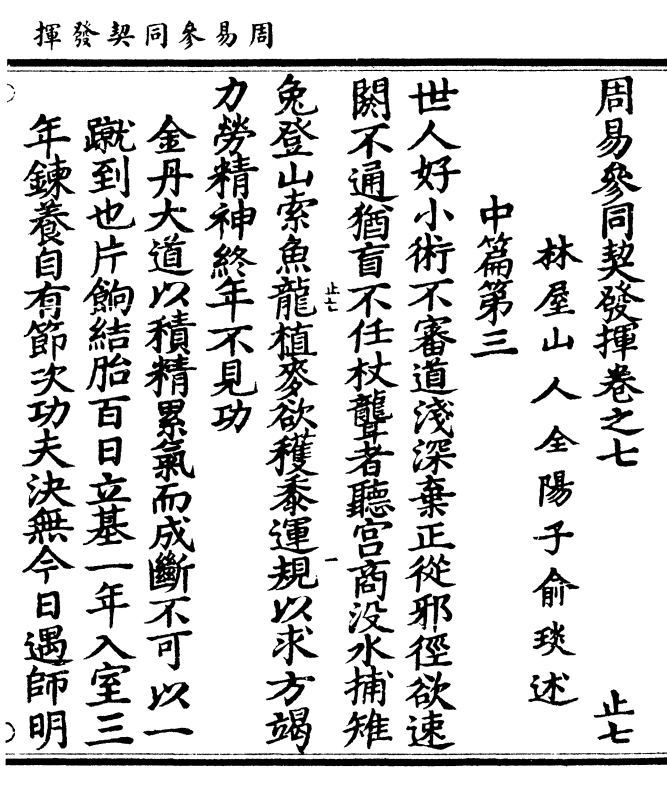 周易參同契發揮
周易參同契發揮卷之七 止七
林屋山人全陽子俞琰述
中篇第三
世人好小術不審道淺深棄正從邪徑欲速
闕不通猶盲不任杖聾者聽宮商没水捕雉
兔登山索魚龍植麥欲穫黍運規以求方竭
力勞精神終年不見功
金丹大道以積精累氣而成斷不可以一
蹴到也片餉結胎百日立基一年入室三
年鍊養自有節次功夫決無今日遇師明
止七 一